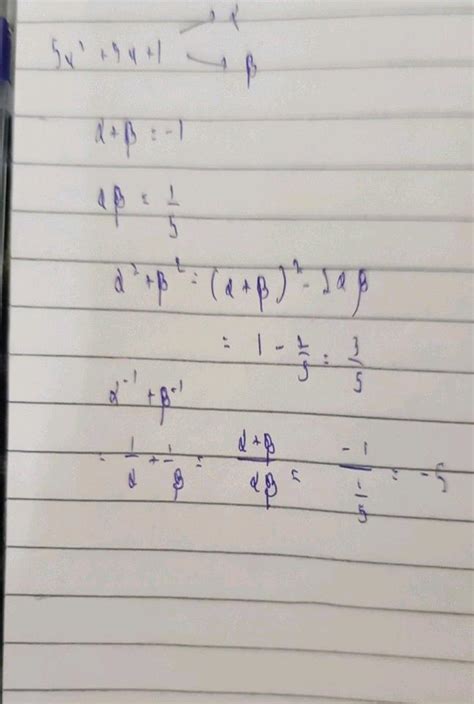 5x² + 5x + 1 → α
→ β
α + β = -1
αβ = 1/5
α² + β² = (α + β)² - 2αβ
= 1 - 2/5 = 3/5
α⁻¹ + β⁻¹
= 1/α + 1/β = (α + β)/(αβ) = -1/(1/5) = -5